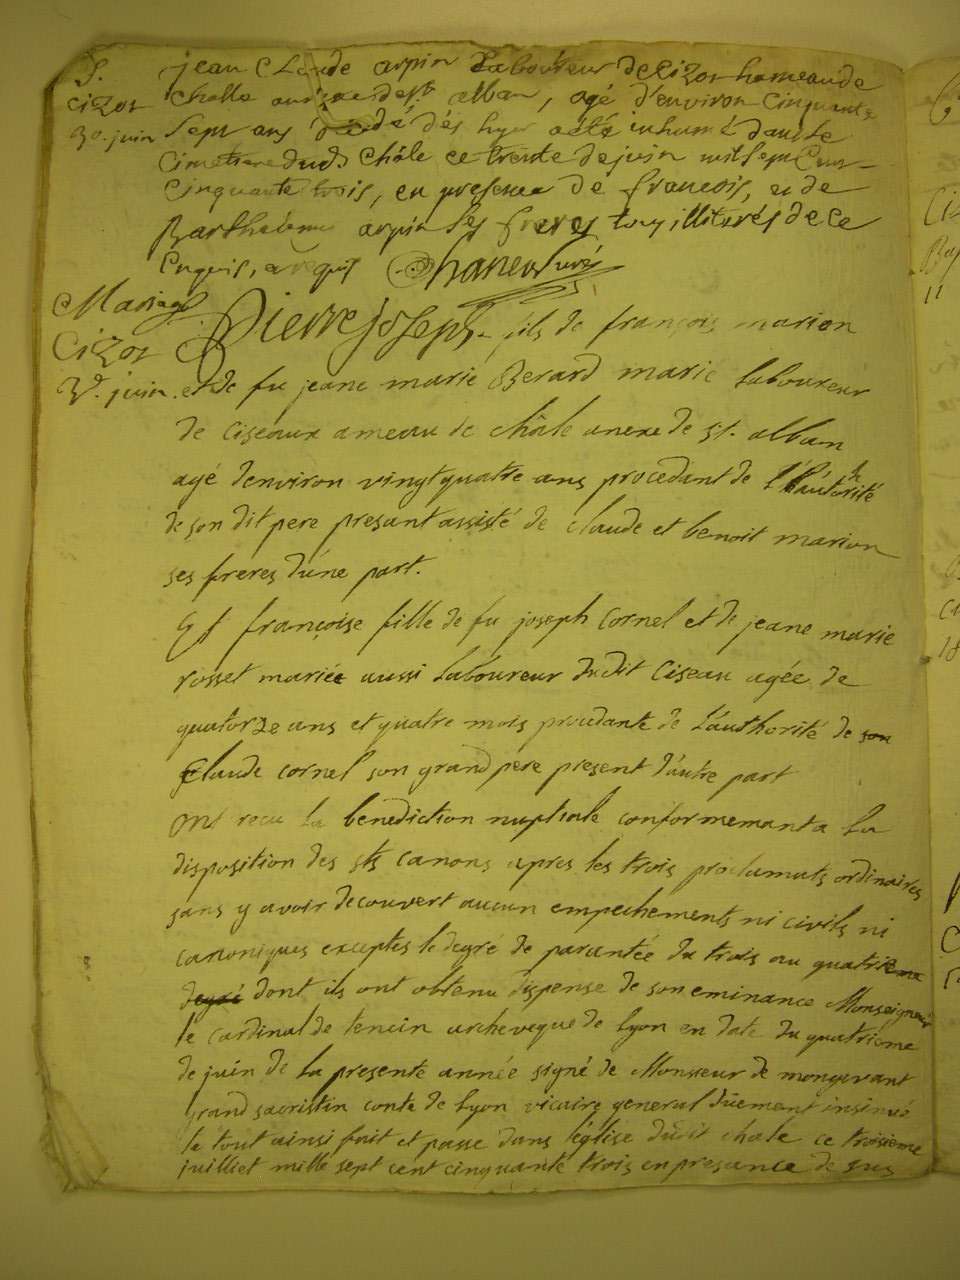 S. jean Claude arpin Laboureur de Cizos hameau de
Cizos Challe anexe de st. alban, agé d'environ Cinquante
30. juin Sept ans décédé dés hyer a été inhumé dans le
Cimetiere dud. Châle ce trente de juin mil Sept Cens
Cinquante trois, en presence de françois, et de
Barthelemy arpin Ses freres tous illiterés de Ce
Enquis, et requis Chanen curé
Mariage Pierre joseph fils de françois marion
Cizos
3e. juin. et de fu jeane marie Berard marié Laboureur
de Ciseaux ameau de Châle anexe de st. alban
agé denviron vingt quatre ans procedant de l'autorité
de son dit pere present assisté de Claude et benoit marion
ses freres d'une part.
Et françoise fille de fu joseph Cornel et de jeane marie
rosset mariée aussi Laboureur dudit Ciseau agée de
quatorze ans et quatre mois procedante de L'authorité de son
Claude cornel son grand pere present d'autre part
ont recu la benediction nuptiale conformemant a La
disposition des sts canons apres les trois proclamats ordinaires
sans y avoir decouvert aucun empechements ni civils ni
canoniques exceptes le degré de parantée du trois au quatrieme
degré dont ils ont obtenu dispense de son eminance Monseigneur
le cardinal de tencin archeveque de Lyon en date du quatrieme
de juin de La presente année signé de Monsieur de
grand sacristin conte de Lyon vicaire general düement insinué
le tout ainsi fait et passe dans l'église dudit chale ce troisieme
juilliet mille sept cent cinquante trois en presance de sus